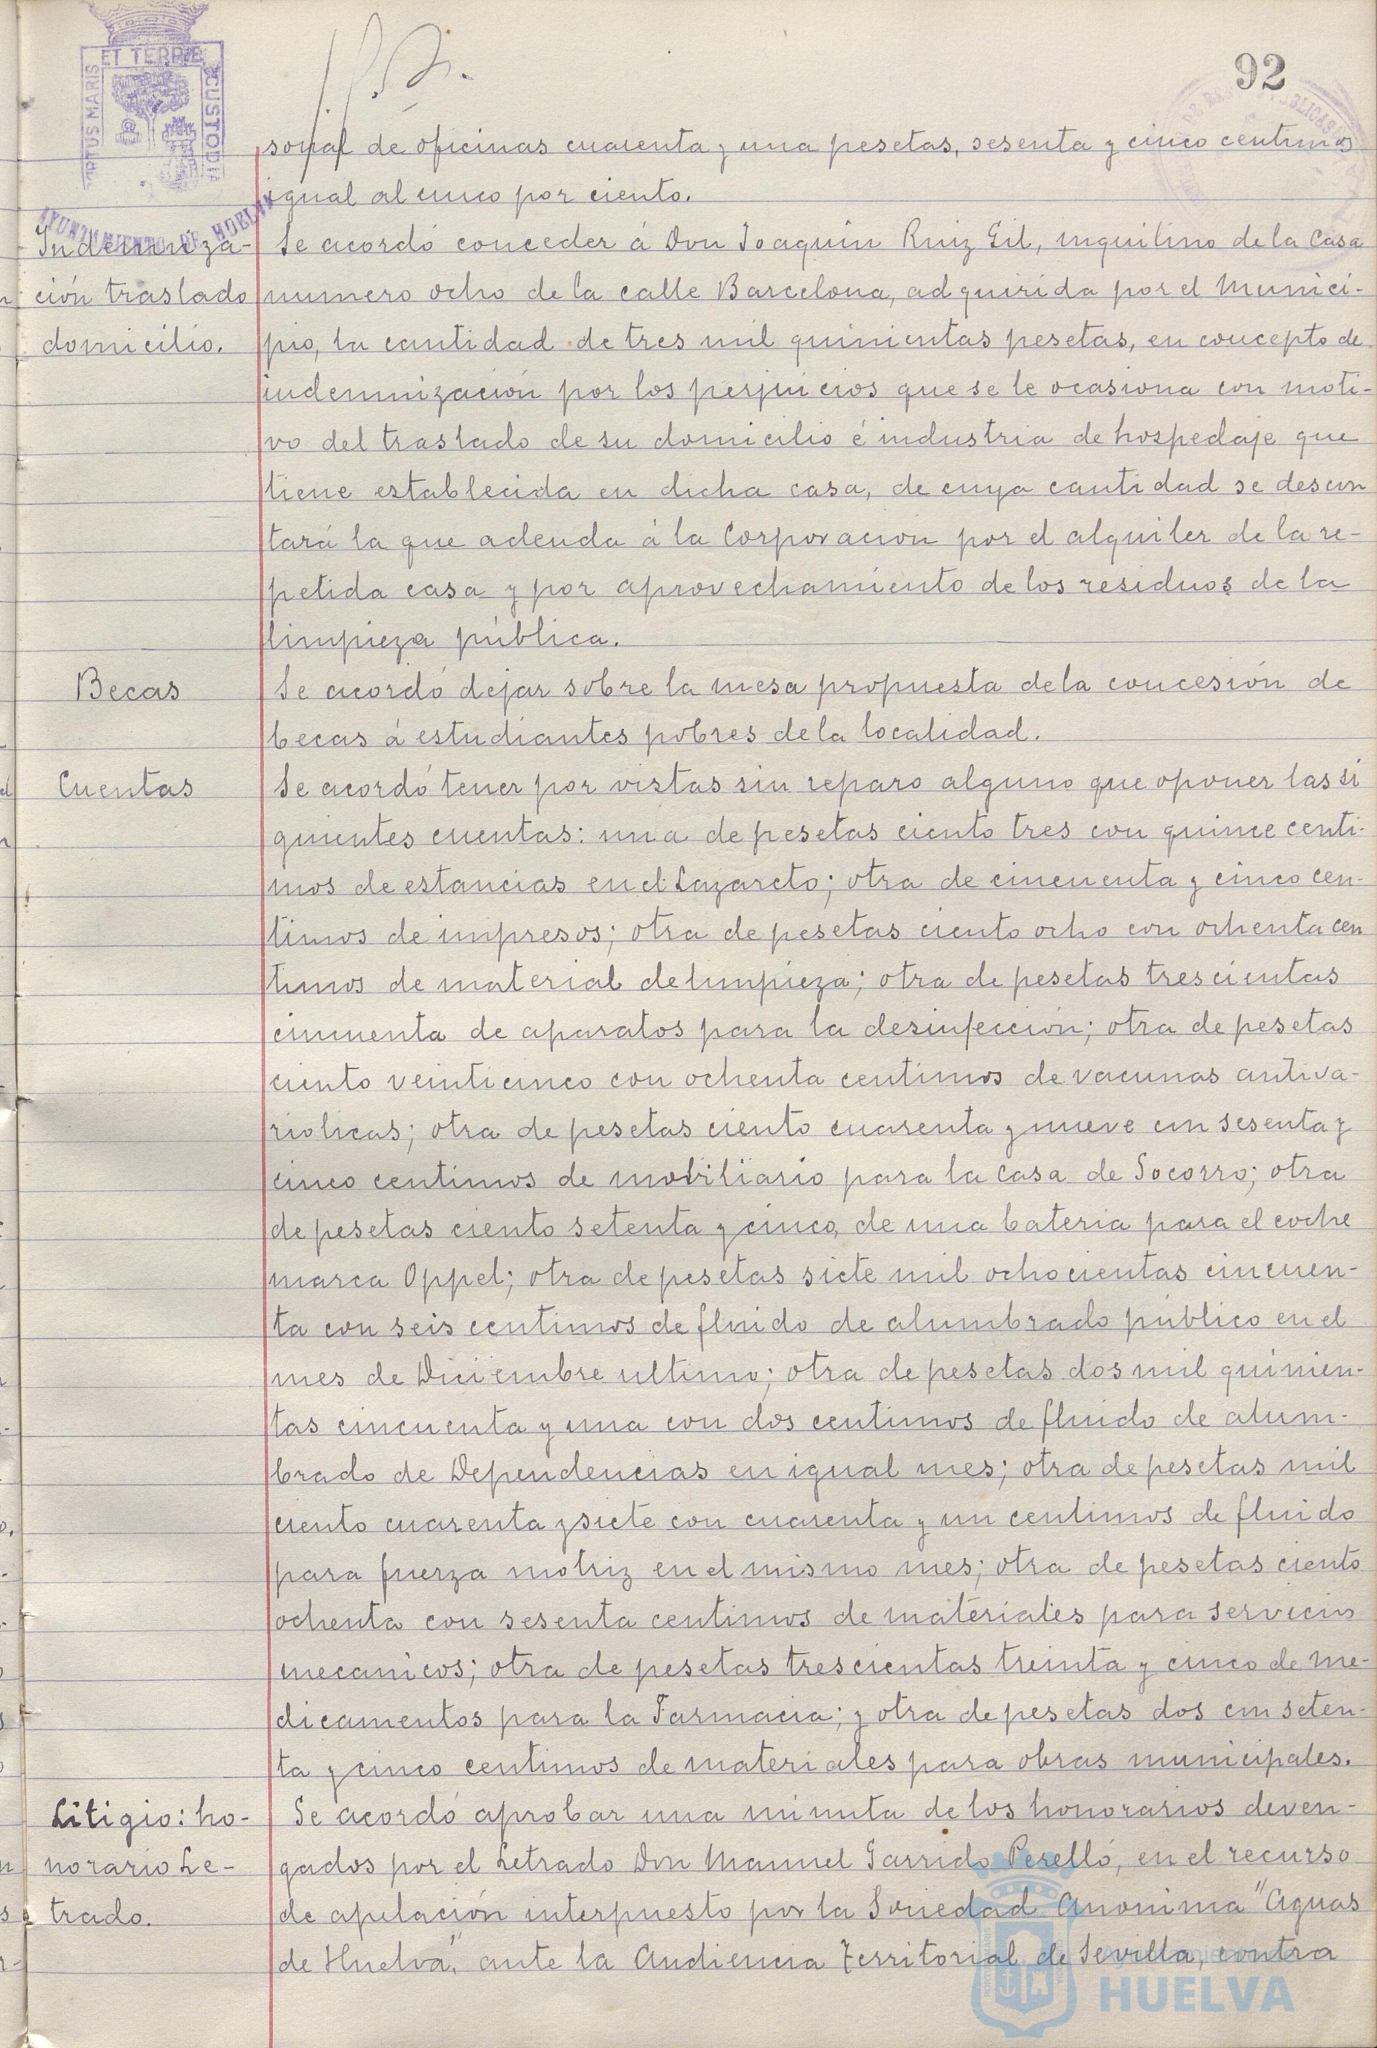 92
ET TERRÆ
CUSTODIA
PORTUS MARIS
AYUNTAMIENTO DE HUELVA
sonal de oficinas cuarenta y una pesetas, sesenta y cinco centimos
igual al cinco por ciento.
Indemniza-
ción traslado
domicilio.
Se acordó conceder á Don Joaquin Ruiz Gil, inquilino de la Casa
numero ocho de la calle Barcelona, adquirida por el Munici-
pio, la cantidad de tres mil quinientas pesetas, en concepto de
indemnización por los perjuicios que se le ocasiona con moti-
vo del traslado de su domicilio é industria de hospedaje que
tiene establecida en dicha casa, de cuya cantidad se descon
tará la que adeuda á la Corporación por el alquiler de la re-
petida casa y por aprovechamiento de los residuos de la
limpieza pública.
Becas
Se acordó dejar sobre la mesa propuesta de la concesión de
becas á estudiantes pobres de la localidad.
Cuentas
Se acordó tener por vistas sin reparo alguno que oponer las si
guientes cuentas: una de pesetas ciento tres con quince centi-
mos de estancias en el Lazareto; otra de cincuenta y cinco cen-
timos de impresos; otra de pesetas ciento ocho con ochenta cen
timos de material de limpieza; otra de pesetas trescientas
cincuenta de aparatos para la desinfección; otra de pesetas
ciento veinticinco con ochenta centimos de vacunas antiva-
riolicas; otra de pesetas ciento cuarenta y nueve con sesenta y
cinco centimos de mobiliario para la Casa de Socorro; otra
de pesetas ciento setenta y cinco, de una bateria para el coche
marca Oppel; otra de pesetas siete mil ochocientas cincuen-
ta con seis centimos de fluido de alumbrado público en el
mes de Diciembre ultimo; otra de pesetas dos mil quinien-
tas cincuenta y una con dos centimos de fluido de alum-
brado de Dependencias en igual mes; otra de pesetas mil
ciento cuarenta y siete con cuarenta y un centimos de fluido
para fuerza motriz en el mismo mes; otra de pesetas ciento
ochenta con sesenta centimos de materiales para servicios
mecanicos; otra de pesetas trescientas treinta y cinco de me-
dicamentos para la Farmacia; y otra de pesetas dos con seten-
ta y cinco centimos de materiales para obras municipales.
Litigio: ho-
norario Le-
trado.
Se acordó aprobar una minuta de los honorarios deven-
gados por el Letrado Don Manuel Garrido Perelló, en el recurso
de apelación interpuesto por la Sociedad Anonima "Aguas
de Huelva", ante la Audiencia Territorial de Sevilla, contra
HUELVA